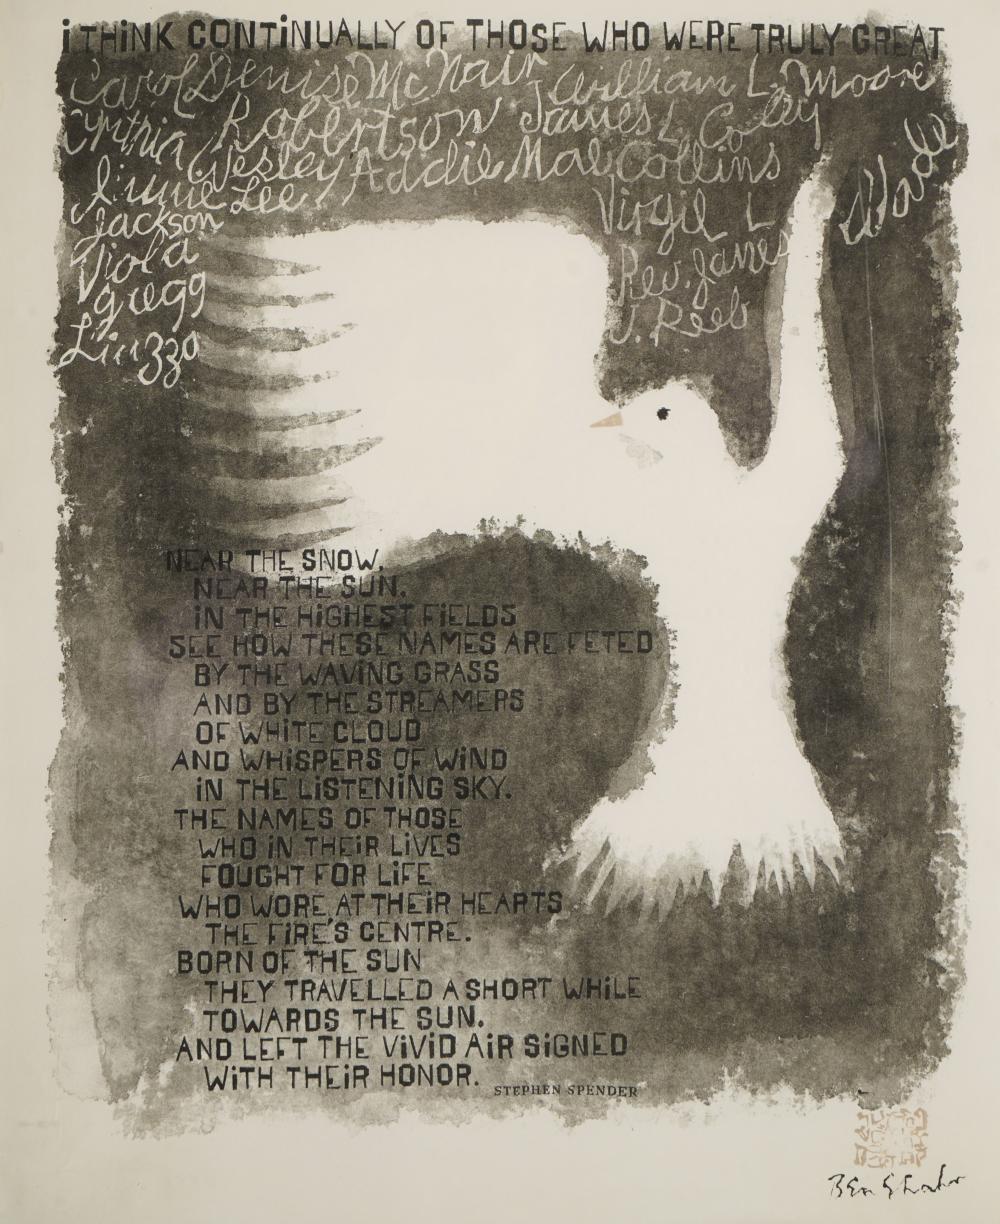 i THiNK CONTiNUALLY OF THOSE WHO WERE TRULY GREAT
Carol Denise McNair William L. Moore
Cynthia Wesley Robertson James L. Coley
Jimmie Lee Jackson Addie Mae Collins
Virgil L Wade
Rev. James J. Reeb
Viola
Gregg
Liuzzo
NEAR THE SNOW,
NEAR THE SUN.
iN THE HiGHEST FiELDS
SEE HOW THESE NAMES ARE FETED
BY THE WAViNG GRASS
AND BY THE STREAMERS
OF WHiTE CLOUD
AND WHiSPERS OF WiND
iN THE LiSTENiNG SKY.
THE NAMES OF THOSE
WHO iN THEiR LiVES
FOUGHT FOR LiFE
WHO WORE AT THEiR HEARTS
THE FiRE'S CENTRE.
BORN OF THE SUN
THEY TRAVELLED A SHORT WHiLE
TOWARDS THE SUN.
AND LEFT THE ViViD AiR SiGNED
WiTH THEiR HONOR.
STEPHEN SPENDER
Ben Shahn